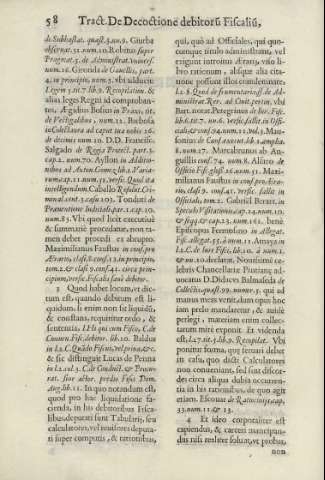 58 Tract. De Decoctione debitorũ Fiscaliũ,
de Subhastat. quæst. 3. nu. 9. Giurba
observat. 51. num. 10. Robitus super
Pragmat. 5. de Administrat. Universf.
num. 16. Gironda de Gauellis, part.
4. in principio, num. 3. vbi adducit
Legem 3. tit. 7. lib. 9. Recopilation. &
alias leges Regni id comprobantes.
Ægidius Bosius in Praxi, tit.
de Vectigalibus, num. 12. Barbosa
D.D. Francisc.
Salgado de Regia Protect. part. 3.
cap. 2. num. 70. Ayllon in Additionibus
ad Anton. Gomez lib. 2. Variarum,
cap. 11. num. 51. versic. Quod ita
intelligendum. Caballo Resolut. Criminal.
cent. 3. casu 203. Tondut. de
num. 85. Vbi quod licet executivè
& summariè procedatur, non tamen
debet procedi ex abrupto.
Maximilianus Faustus in conf. pro
Ærario, clas. 8. conf. 13. in principio,
tom. 2. & clas. 9. conf. 41. circa principium,
versic. Fiscalia suut debitor.
3 Quod habet locum, et dictum
est, quando debitum est liquidum.
si enim non sit liquidũ,
& constans, requiritur ordo, &
sententia, l. Hi qui cum Fisco, C. de
Conuen. Fisc. debitor. lib. 10. Baldus
in l. 2. C. Quando Fiscus, vel priua. &c.
& sic distinguit Lucas de Penna
in l. 2. col. 3. C. de Conduct. & Procurat.
siue actor. prædis Fisca. Dom.
Aug. lib. 11. In quo notandum est,
quod pro hac liquidatione facienda,
in his debitoribus Fiscalibus,
deputati sunt Tabularij, seu
calculatores, vel reuisores deputati
super computis, & rationibus,
qui, quò ad Officiales, qui quocumque
titulo administrant, vel
exigunt introitus ærarij, viso libro
rationum, absque alia citatione
possunt illos condemnare,
Administrat. Rer. ad Ciuit. pertin. vbi
Bart. notat. Peregrinus de Iur. Fisc.
lib. 6. tit. 7. nu. 6. versic. fallit in Officiali,
& conf. 94. num. 11. vol. 3. Mausonius
de Conf. contract. lib. 4. ampla.
8. num. 27. Marcabrunus ab Anguillis
conf. 74. num. 8. Alfaro de
Officio Fisc. glos. 16. num. 51. Maximilianus
Faustus in conf. pro Ærario,
clas. 9. conf. 41. versic. fallit in
Officiali, tom. 2. Gabriel Berart. in
Speculo Visitationis, cap. 24. num. 10.
& seqq. & cap. 23. num. 161. benè
Episcopus Fermosino in Allegat.
Fisc. allegat. 55. à num. 11. Amaya in
l. 2. C. de Iure Fisci, lib. 10. à num. 1.
& nu. 10. declarat. Nouissimè celebris
Chancellariæ Pintianæ aduocatus
D. Didacus Balmaseda de
Collectis, quæst. 99. numer. 3. qui ad
manus meas venit, dum opus hoc
iam prælo mandaretur, & auidè
perlegi, materiam enim collectarum
mirè exponit. Et videnda
est, l. 27. tit. 5. lib. 9. Recopilat. Vbi
ponitur forma, quę seruari debet
in casu, quo dicti Calculatores
non conueniant, sed sint discordes
circa aliqua dubia occurrentia
in his rationibus, de quo agit
etiam. Escouar de Ratiocinijs cap.
33. num. 11. & 13.
4 Et ideo corporaliter est
capiendus, & carceri mancipandus
nisi realiter soluat, vt probat,
non